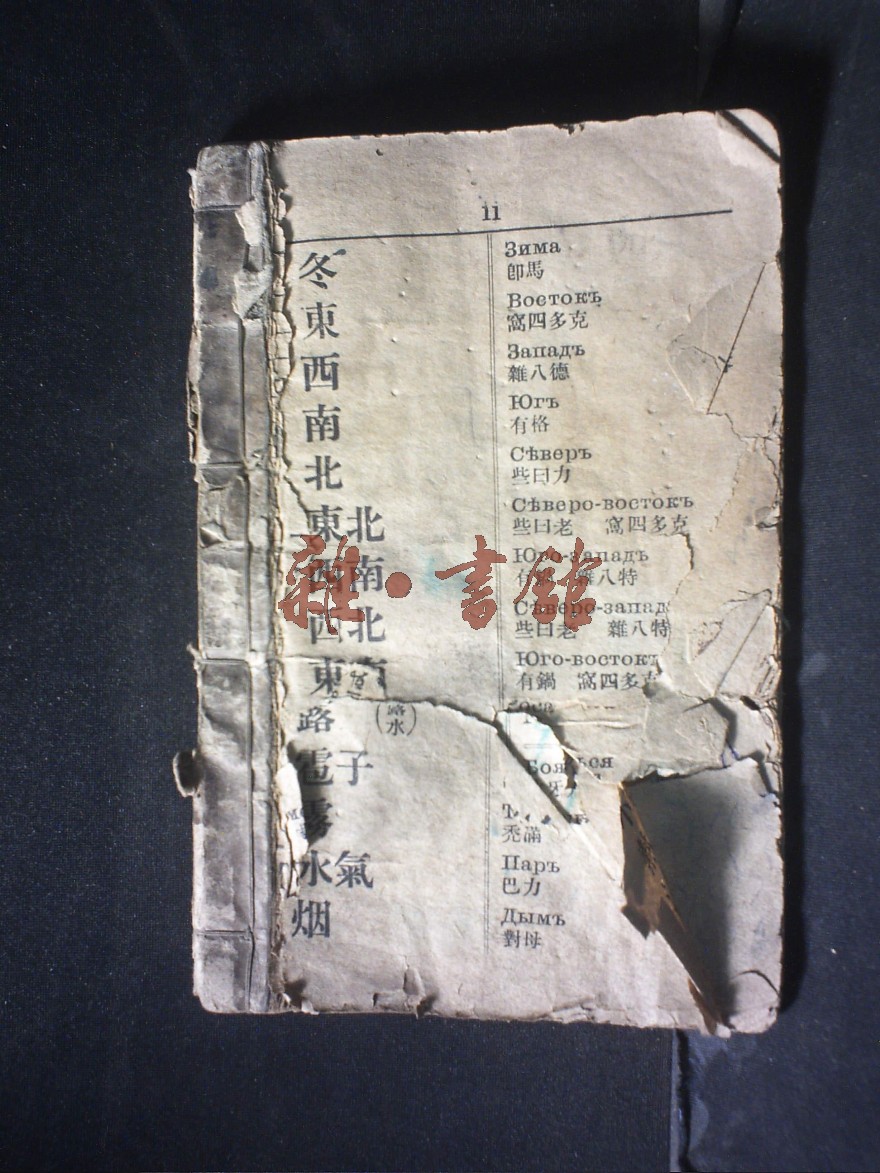 11
冬
Зима
卽馬
東
Востокъ
窩四多克
西
Западъ
雜八德
南
Югъ
有格
北
Сѣверъ
些曰力
東北
Сѣверо-востокъ
些曰老 窩四多克
西南
Юго-западъ
雜八特
西北
Сѣверо-запад
些曰老 雜八特
東
Юго-востокъ
有鍋 窩四多克
路
水
雹子
霧
禿滿
水氣
Паръ
巴力
烟
Дымъ
對母
雜·書館